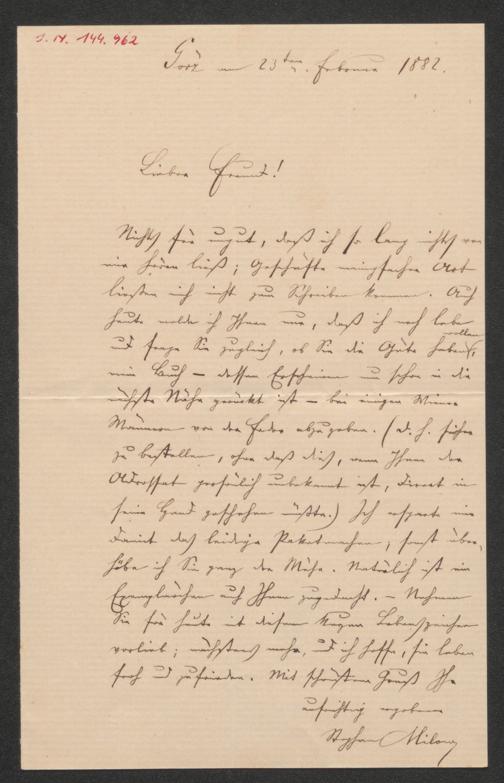 I. N. 144.962
Görz am 23ten Februar 1882.
Lieber Freund!
Nichts für ungut, daß ich so lang nichts von
mir hören ließ; Geschäfte mannigfacher Art
ließen mich nicht zum Schreiben kommen. Auch
heute melde ich Ihnen nur, daß ich noch lebe
und frage Sie zugleich, ob Sie die Güte haben wollen,
mein Buch – dessen Erscheinen nun schon in die
nächste Nähe gerückt ist – bei einigen Wiener
Männern von der Feder abzugeben. (d. h. sicher
zu bestellen, ohne daß dies, wenn Ihnen der
Adressat persönlich unbekannt ist, direct in
seine Hand geschehen müßte.) Ich erspare mir
damit das leidige Paketmachen, sonst über-
höbe ich Sie ganz der Mühe. Natürlich ist ein
Exemplärchen auch Ihnen zugedacht. – Nehmen
Sie für heute mit diesem kurzen Lebenszeichen
vorlieb; nächstens mehr, und ich hoffe, Sie leben
froh und zufrieden. Mit schönstem Gruß Ihr
aufrichtig ergebener
Stephan Milow